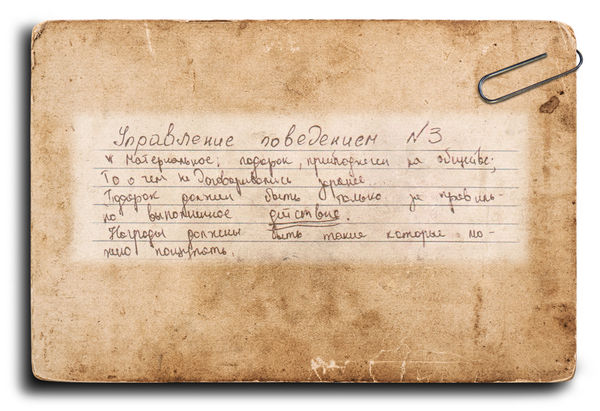 Управление поведением №3
* Материальное; подарок, приподнесен на общее;
То о чем не договаривались заранее.
Подарок должен быть только за правиль-
но выполненное действие.
Награды должны быть такие которые мо-
жно пощупать.